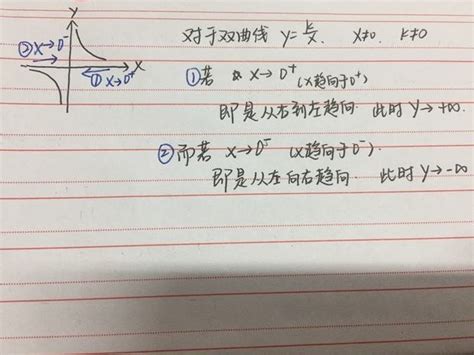 y
② x→0⁻
x
① x→0⁺
对于双曲线 y=k/x. x≠0. k≠0
①若 x→0⁺ (x趋向于0⁺)
即是从右到左趋向. 此时 y→+∞.
②而若 x→0⁻ (x趋向于0⁻).
即是从左向右趋向. 此时 y→-∞